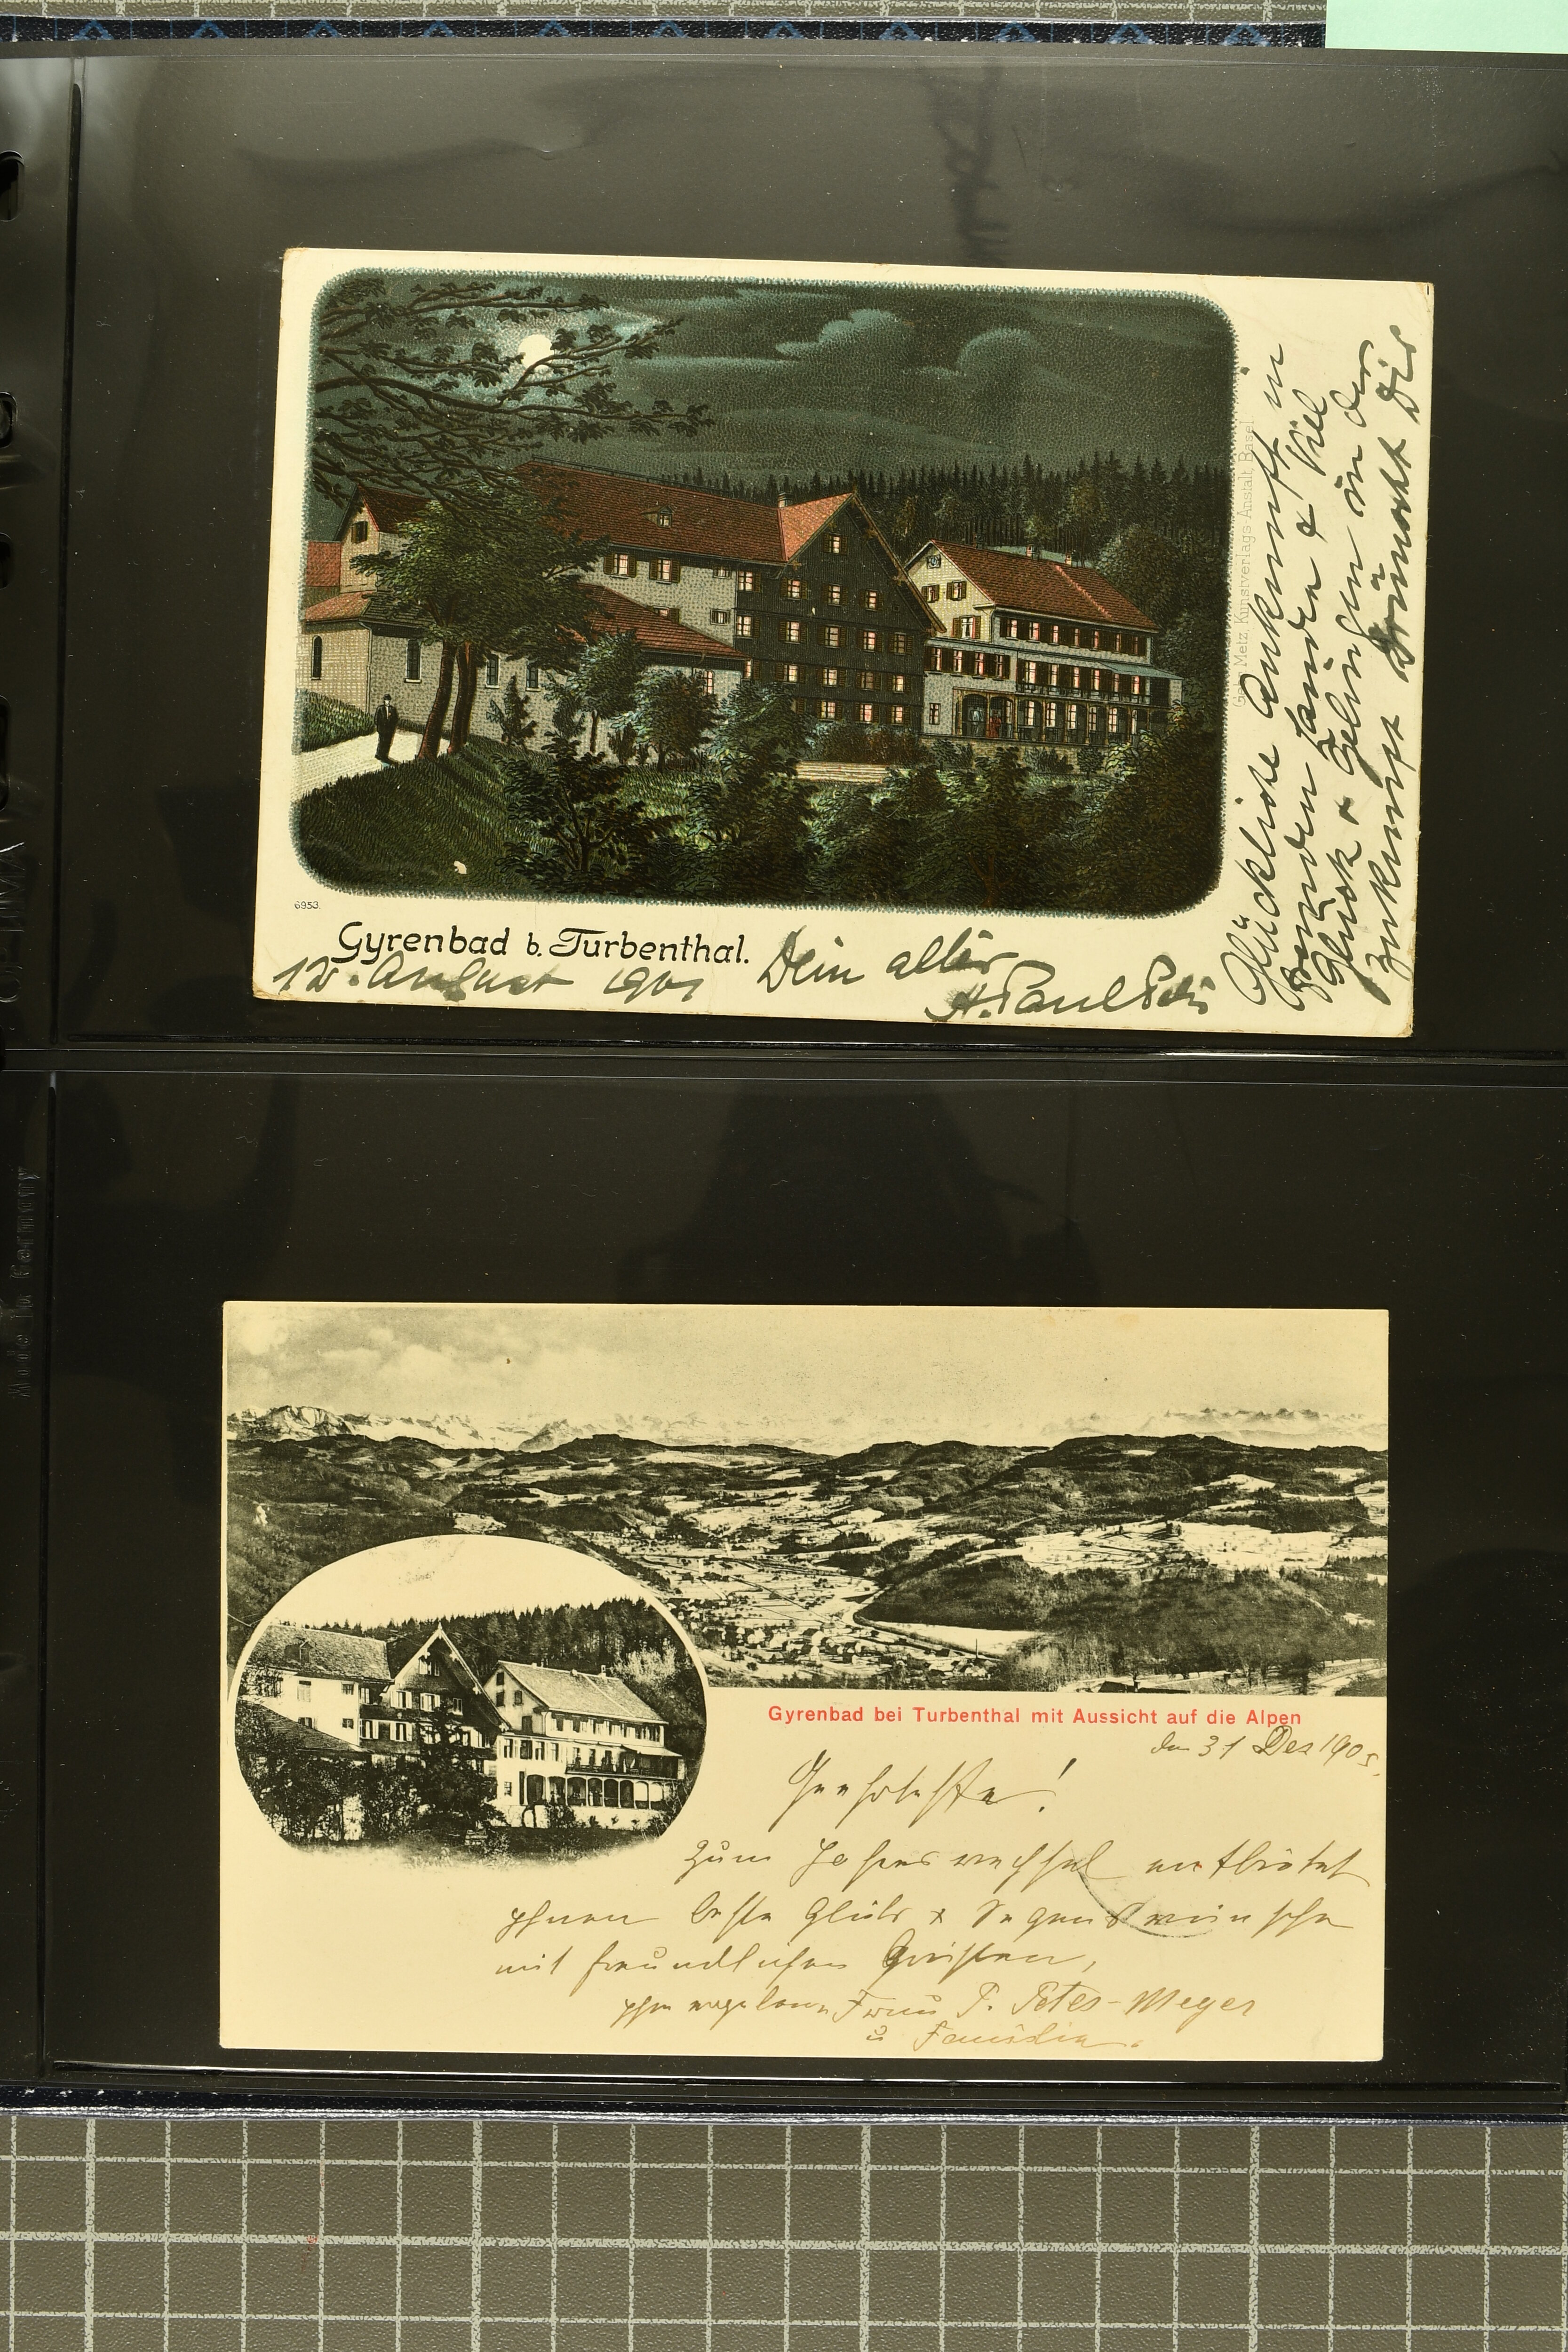 Glückliche Ankunft in
fremden Lande & Viel
Glück & Gelingen in der
Zukunft wünscht Dir
Ges. Metz, Kunstverlags-Anstalt, Basel
6953.
Gyrenbad b. Turbenthal.
12. August 1901 Dein alter
H. Paul Peter
Gyrenbad bei Turbenthal mit Aussicht auf die Alpen
den 31 Dez 1905.
Geehrteste!
Zum Jahreswechsel entbietet
Ihnen beste Glück & Segenswünsche
mit freundlichen Grüssen,
Ihre ergebene Frau P. Peter-Meyer
u Familie.
Made in Germany